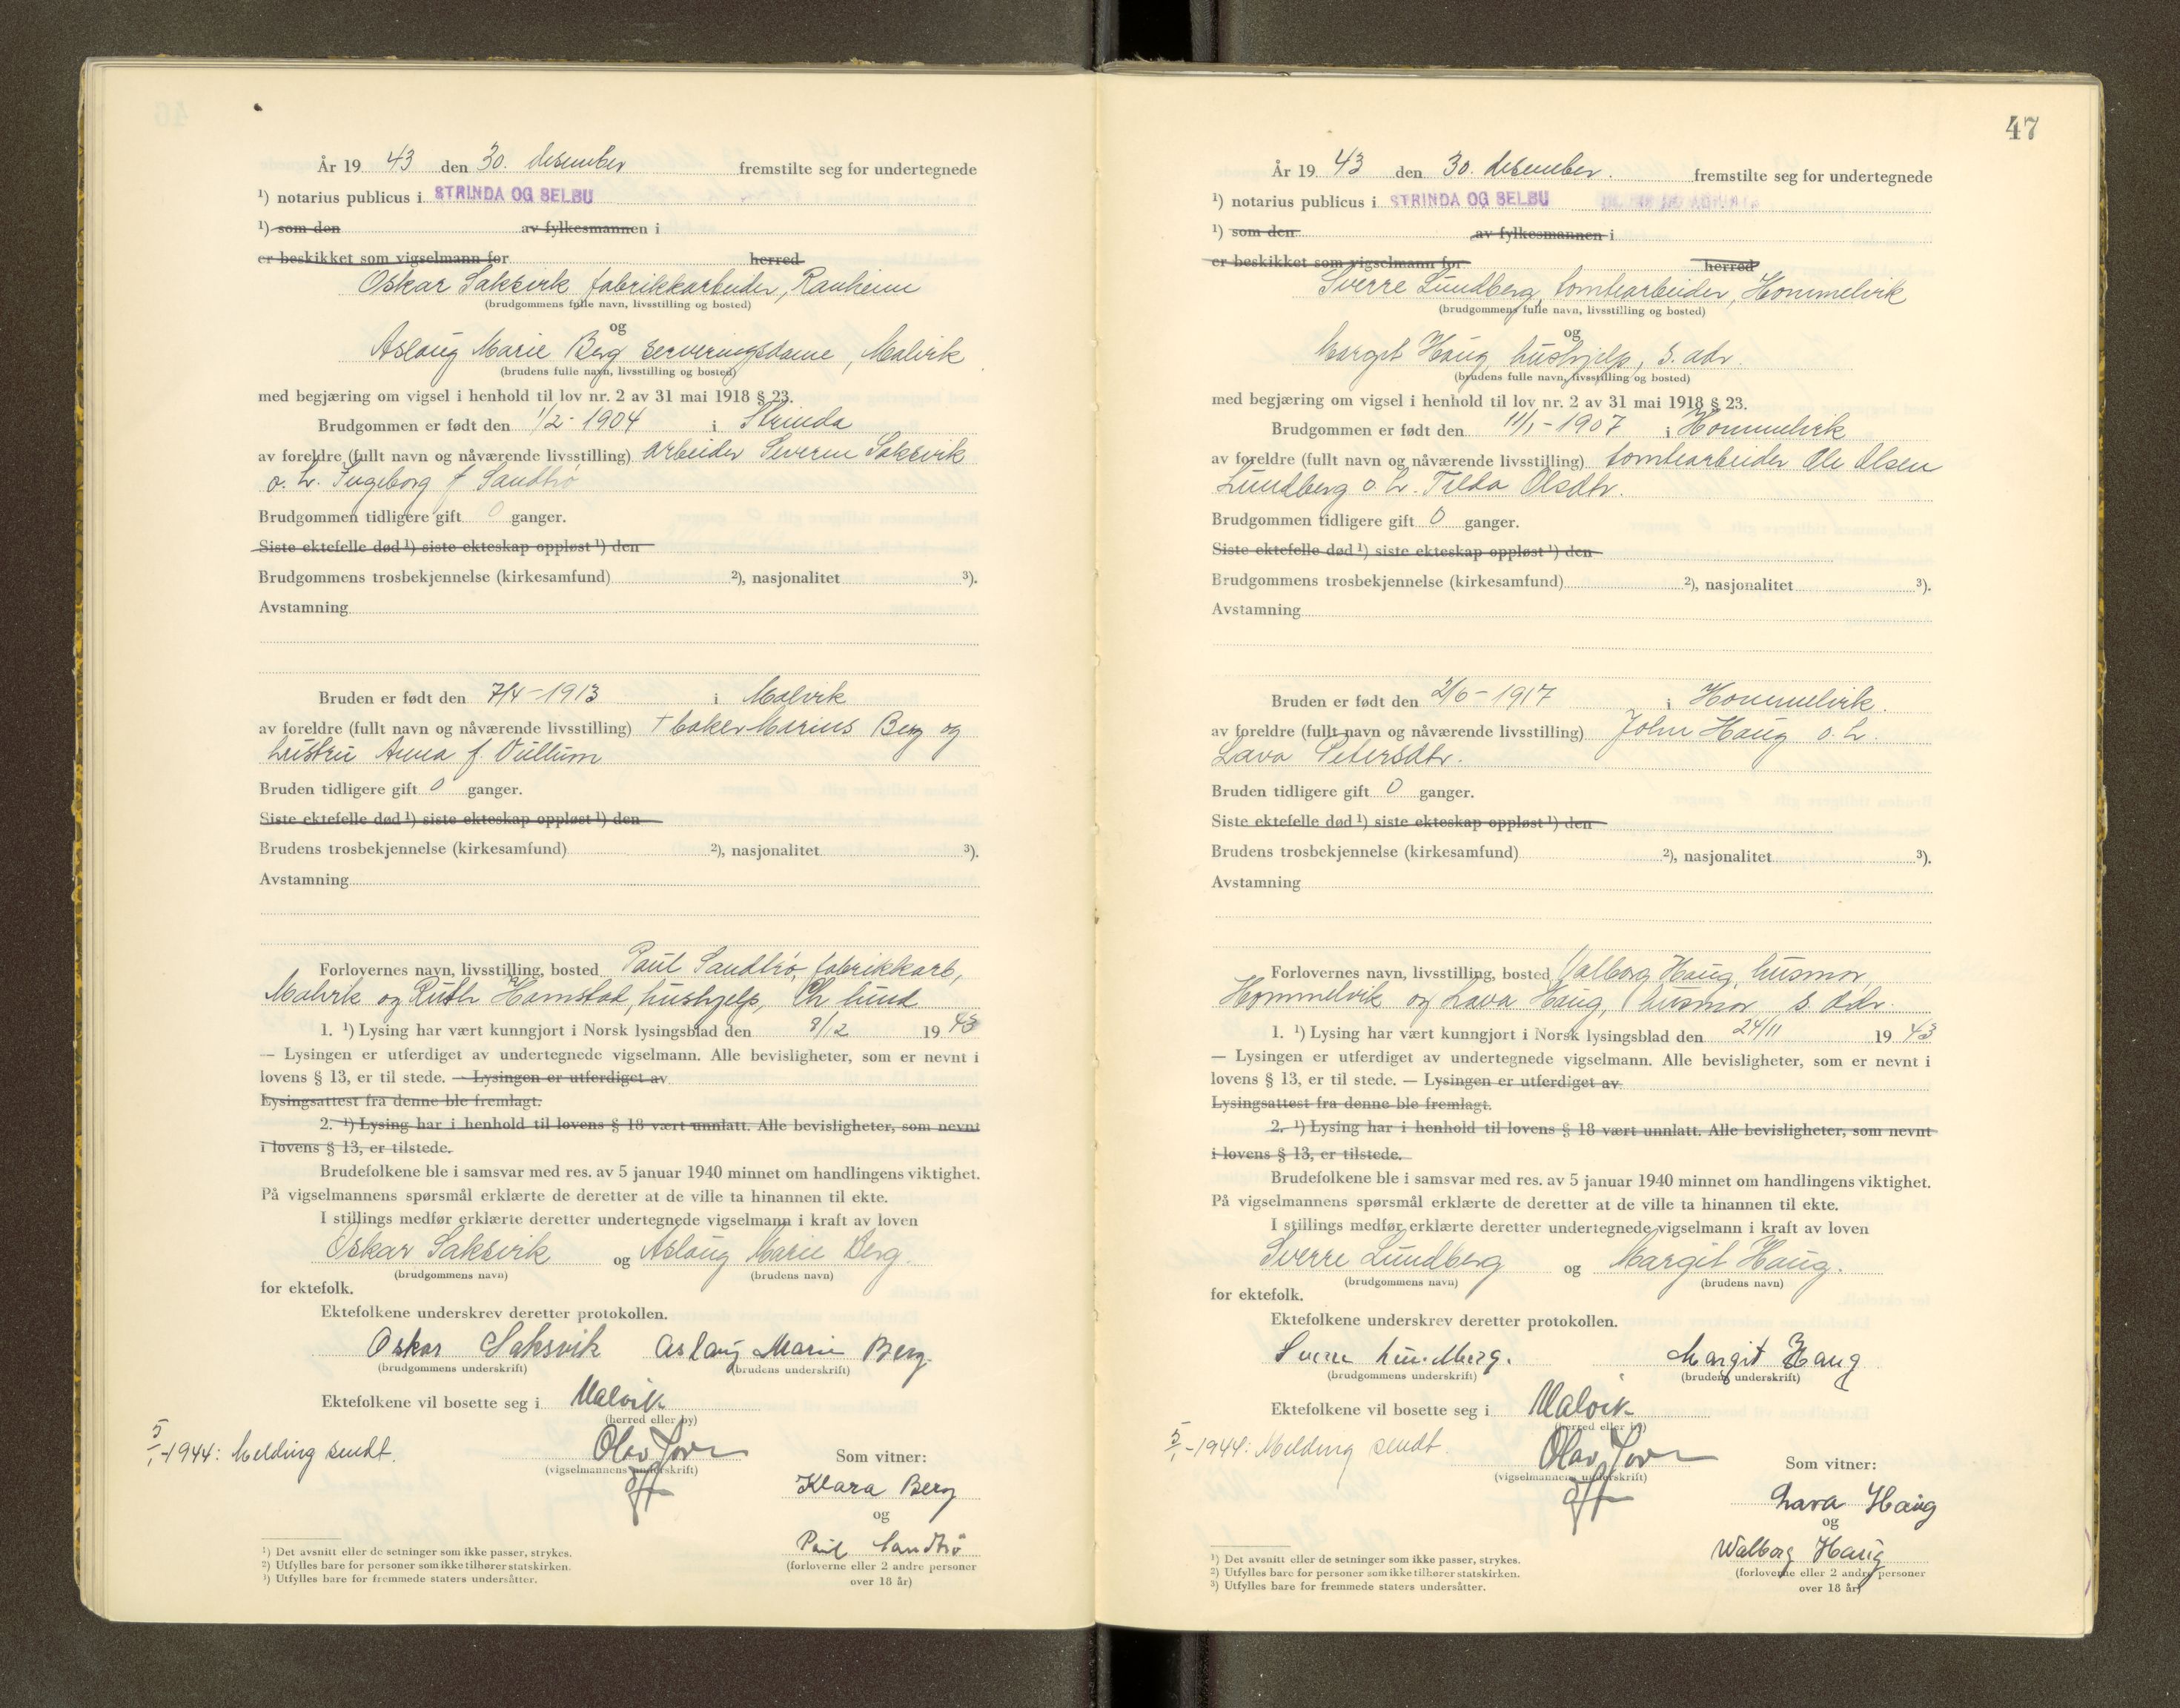 År 19 43 den 30. desember fremstilte seg for undertegnede
¹) notarius publicus i STRINDA OG SELBU
¹) som den av fylkesmannen i
er beskikket som vigselmann for herred
Oskar Saksvik fabrikkarbeider, Ranheim
(brudgommens fulle navn, livsstilling og bosted)
og
Aslaug Marie Berg serveringsdame, Malvik
(brudens fulle navn, livsstilling og bosted)
med begjæring om vigsel i henhold til lov nr. 2 av 31 mai 1918 § 23.
Brudgommen er født den 1/2 - 1904 i Strinda
av foreldre (fullt navn og nåværende livsstilling) arbeider Severin Saksvik
o. h. Ingeborg f Sandtrø
Brudgommen tidligere gift 0 ganger.
Siste ektefelle død ¹) siste ekteskap oppløst ¹) den
Brudgommens trosbekjennelse (kirkesamfund) ²), nasjonalitet ³).
Avstamning
Bruden er født den 7/4 - 1913 i Malvik
av foreldre (fullt navn og nåværende livsstilling) † baker Marius Berg og
hustru Anna f. Vullum
Bruden tidligere gift 0 ganger.
Siste ektefelle død ¹) siste ekteskap oppløst ¹) den
Brudens trosbekjennelse (kirkesamfund) ²), nasjonalitet ³).
Avstamning
Forlovernes navn, livsstilling, bosted Paul Sandtrø, fabrikkarb,
Malvik og Ruth Hamstad, hushjelp,
1. ¹) Lysing har vært kunngjort i Norsk lysingsblad den 8/12 19 43
— Lysingen er utferdiget av undertegnede vigselmann. Alle bevisligheter, som er nevnt i
lovens § 13, er til stede. — Lysingen er utferdiget av
Lysingsattest fra denne ble fremlagt.
2. ¹) Lysing har i henhold til lovens § 18 vært unnlatt. Alle bevisligheter, som nevnt
i lovens § 13, er tilstede.
Brudefolkene ble i samsvar med res. av 5 januar 1940 minnet om handlingens viktighet.
På vigselmannens spørsmål erklærte de deretter at de ville ta hinannen til ekte.
I stillings medfør erklærte deretter undertegnede vigselmann i kraft av loven
Oskar Saksvik og Aslaug Marie Berg.
(brudgommens navn) (brudens navn)
for ektefolk.
Ektefolkene underskrev deretter protokollen.
Oskar Saksvik Aslaug Marie Berg.
(brudgommens underskrift) (brudens underskrift)
Ektefolkene vil bosette seg i Malvik
(herred eller by)
5/1-1944: Melding sendt.
(vigselmannens underskrift)
Som vitner:
Klara Berg
og
Paul Sandtrø
(forloverne eller 2 andre personer
over 18 år)
¹) Det avsnitt eller de setninger som ikke passer, strykes.
²) Utfylles bare for personer som ikke tilhører statskirken.
³) Utfylles bare for fremmede staters undersåtter.
47
År 19 43 den 30. desember. fremstilte seg for undertegnede
¹) notarius publicus i STRINDA OG SELBU
¹) som den av fylkesmannen i
er beskikket som vigselmann for herred
Sverre Lundberg, tomtearbeider, Hommelvik
(brudgommens fulle navn, livsstilling og bosted)
og
Margit Haug, hushjelp, s. adr.
(brudens fulle navn, livsstilling og bosted)
med begjæring om vigsel i henhold til lov nr. 2 av 31 mai 1918 § 23.
Brudgommen er født den 11/1 - 1907 i Hommelvik
av foreldre (fullt navn og nåværende livsstilling) tomtearbeider Ole Olsen
Lundberg o. h. Tilda Olsdtr.
Brudgommen tidligere gift 0 ganger.
Siste ektefelle død ¹) siste ekteskap oppløst ¹) den
Brudgommens trosbekjennelse (kirkesamfund) ²), nasjonalitet ³).
Avstamning
Bruden er født den 2/6 - 1917 i Hommelvik.
av foreldre (fullt navn og nåværende livsstilling) John Haug o. h.
Lava Petersdtr.
Bruden tidligere gift 0 ganger.
Siste ektefelle død ¹) siste ekteskap oppløst ¹) den
Brudens trosbekjennelse (kirkesamfund) ²), nasjonalitet ³).
Avstamning
Forlovernes navn, livsstilling, bosted Valborg Haug, husmor,
Hommelvik og Lava Haug, husmor s. adr.
1. ¹) Lysing har vært kunngjort i Norsk lysingsblad den 24/11 19 43
— Lysingen er utferdiget av undertegnede vigselmann. Alle bevisligheter, som er nevnt i
lovens § 13, er til stede. — Lysingen er utferdiget av
Lysingsattest fra denne ble fremlagt.
2. ¹) Lysing har i henhold til lovens § 18 vært unnlatt. Alle bevisligheter, som nevnt
i lovens § 13, er tilstede.
Brudefolkene ble i samsvar med res. av 5 januar 1940 minnet om handlingens viktighet.
På vigselmannens spørsmål erklærte de deretter at de ville ta hinannen til ekte.
I stillings medfør erklærte deretter undertegnede vigselmann i kraft av loven
Sverre Lundberg og Margit Haug.
(brudgommens navn) (brudens navn)
for ektefolk.
Ektefolkene underskrev deretter protokollen.
Sverre Lundberg. Margit Haug
(brudgommens underskrift) (brudens underskrift)
Ektefolkene vil bosette seg i Malvik
(herred eller by)
5/1-1944: Melding sendt.
(vigselmannens underskrift)
Som vitner:
Lava Haug
og
Walborg Haug
(forloverne eller 2 andre personer
over 18 år)
¹) Det avsnitt eller de setninger som ikke passer, strykes.
²) Utfylles bare for personer som ikke tilhører statskirken.
³) Utfylles bare for fremmede staters undersåtter.